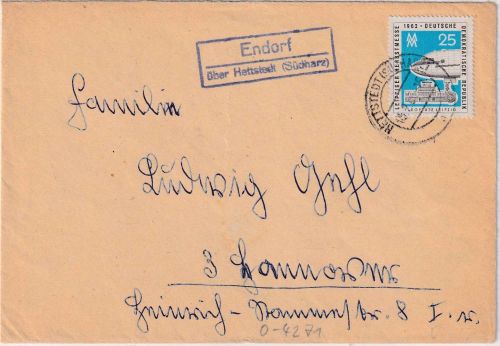 Endorf
über Hettstedt (Südharz)
LEIPZIGER HERBSTMESSE 1962 · DEUTSCHE DEMOKRATISCHE REPUBLIK
25
HETTSTEDT (SÜDHARZ)
Familie
Ludwig Gehl
3 Hannover
Heinrich-Stammestr. 8 I. r.
0-4271